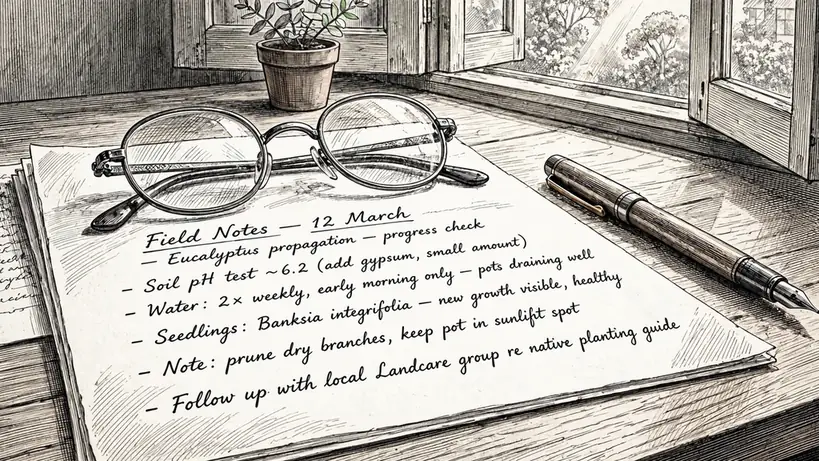 Field Notes — 12 March
— Eucalyptus propagation — progress check
– Soil pH test ~6.2 (add gypsum, small amount)
– Water: 2× weekly, early morning only — pots draining well
– Seedlings: Banksia integrifolia — new growth visible, healthy
– Note: prune dry branches, keep pot in sunlift spot
– Follow up with local Landcare group re native planting guide